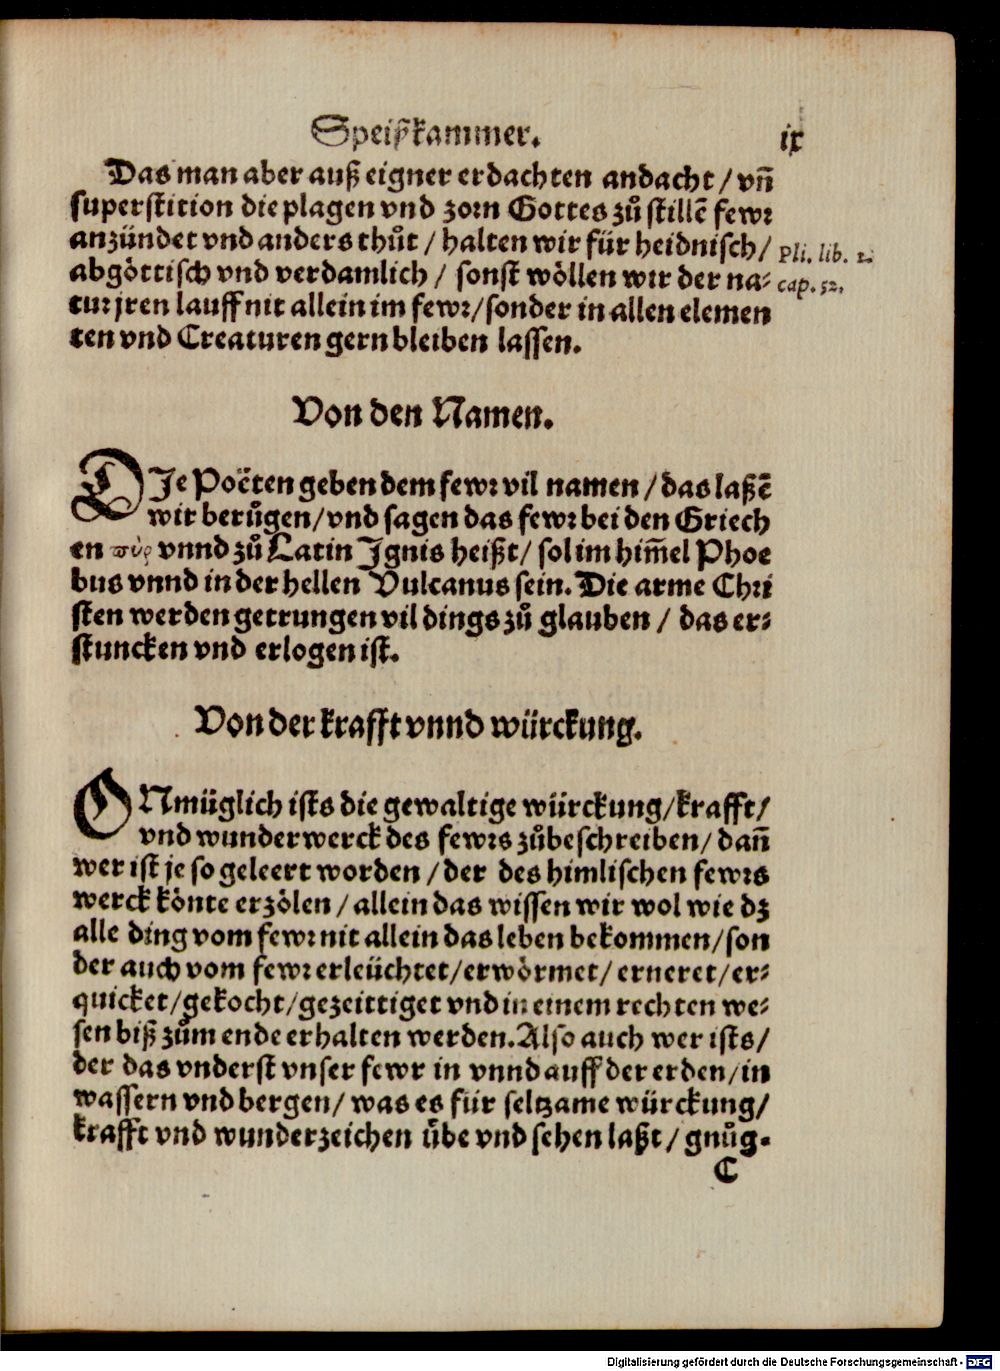 Speiſzkammer. ix
Das man aber auß eigner erdachten andacht / vn̄
superstition die plagen vnd zorn Gottes zů stillē fewr
anzündet vnd anders thůt / halten wir für heidnisch /
Pli. lib. 2.
abgöttisch vnd verdamlich / sonst wöllen wir der na⸗
cap. 52.
tur jren lauff nit allein im fewr / sonder in allen elemen
ten vnd Creaturen gern bleiben lassen.
Von den Namen.
DIe Poëten geben dem fewr vil namen / das laßē
wir berůgen / vnd sagen das fewr bei den Griech
en πῦρ vnnd zů Latin Ignis heißt / sol im him̄el Phoe
bus vnnd in der hellen Vulcanus sein. Die arme Chri
sten werden getrungen vil dings zů glauben / das er⸗
stuncken vnd erlogen ist.
Von der krafft vnnd würckung.
ONmüglich ists die gewaltige würckung / krafft /
vnd wunderwerck des fewrs zůbeschreiben / dan̄
wer ist je so geleert worden / der des himlischen fewrs
werck könte erzölen / allein das wissen wir wol wie dz
alle ding vom fewr nit allein das leben bekommen / son
der auch vom fewr erleüchtet / erwörmet / erneret / er⸗
quicket / gekocht / gezeittiget vnd in einem rechten we⸗
sen biß zům ende erhalten werden. Also auch wer ists /
der das vnderst vnser fewr in vnnd auff der erden / in
wassern vnd bergen / was es für seltzame würckung /
krafft vnd wunderzeichen ůbe vnd sehen laßt / gnůg⸗
C
Digitalisierung gefördert durch die Deutsche Forschungsgemeinschaft - DFG